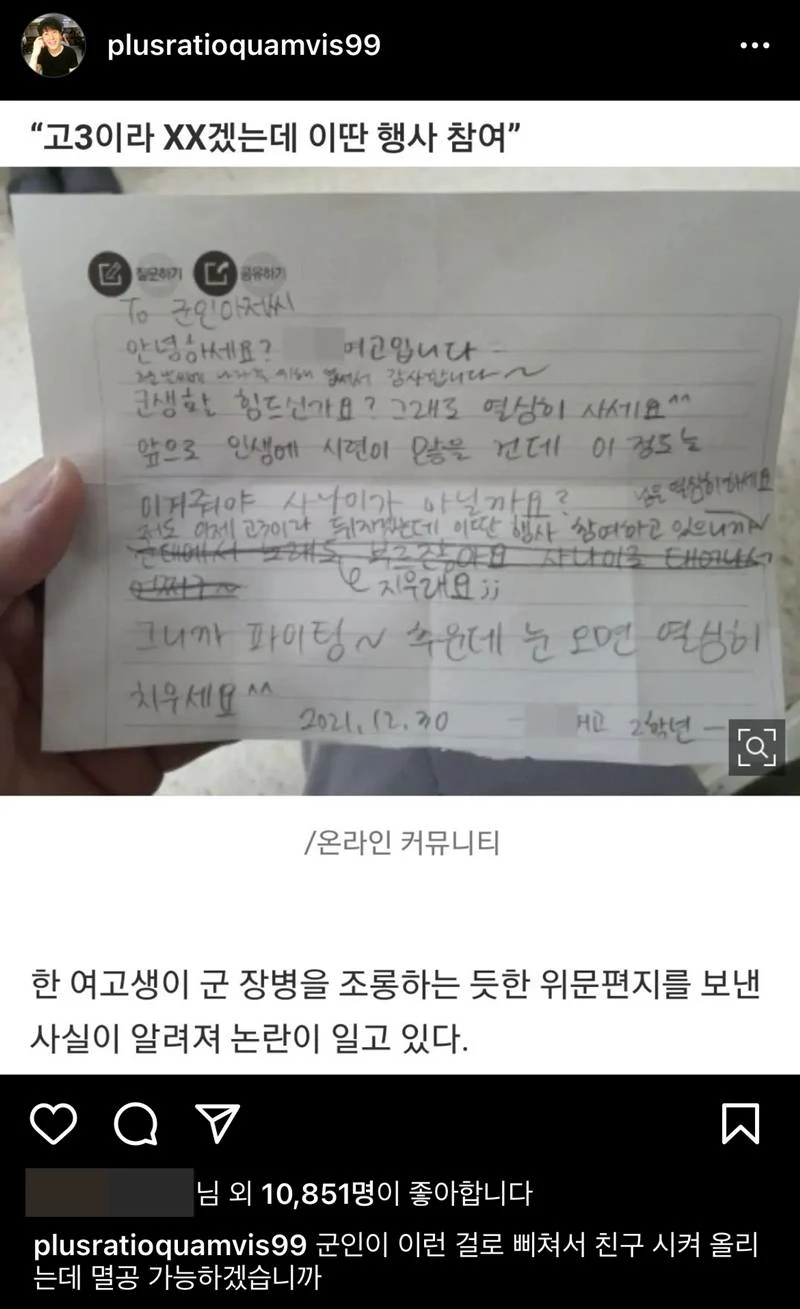 plusratioquamvis99
“고3이라 XX겠는데 이딴 행사 참여”
질문하기 공유하기
To 군인아저씨
안녕하세요? 여고입니다
나라를 위해 힘써서 감사합니다~
군생활 힘드신가요? 그래도 열심히 사세요^^
앞으로 인생에 시련이 많을 건데 이 정도는
이겨줘야 사나이가 아닐까요?
저도 이제 고3이라 뒤지겠는데 이딴 행사 참여하고 있으니까~
님은 열심히 하세요
군대에서 노래도 부르잖아요 사나이로 태어나서
어쩌구~
지우래요;;
그니까 파이팅~ 추운데 눈 오면 열심히
치우세요^^
2021.12.30 여고 2학년
/온라인 커뮤니티
한 여고생이 군 장병을 조롱하는 듯한 위문편지를 보낸
사실이 알려져 논란이 일고 있다.
님 외 10,851명이 좋아합니다
plusratioquamvis99 군인이 이런 걸로 삐쳐서 친구 시켜 올리
는데 멸공 가능하겠습니까